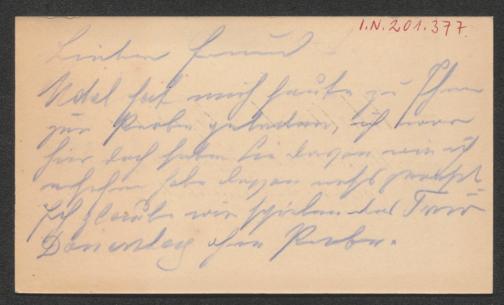 I.N. 201.377
Lieber Freund
Udel hat mich heute zu Ihnen
zur Probe geladen, ich war
hier doch haben Sie davon wie ich
sehe davon nichts gewusst
Ich glaube wir spielen das Trio
Donnerstag ohne Probe.